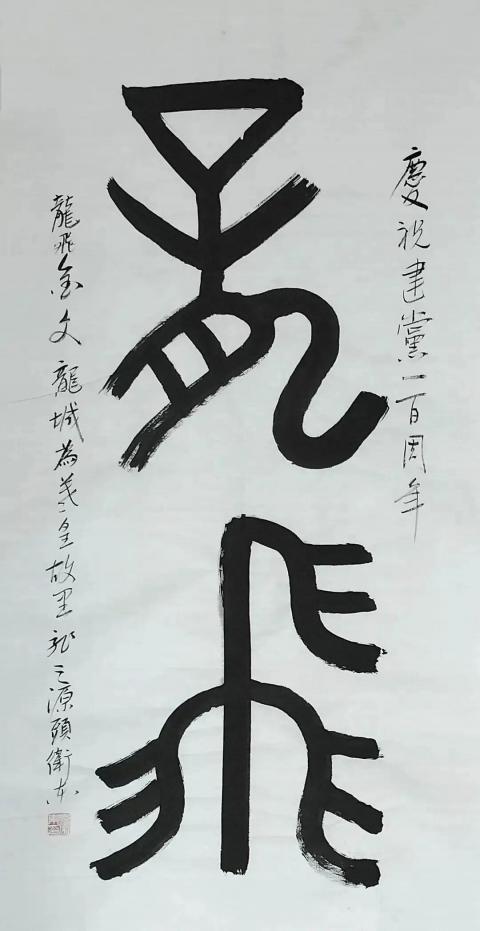 慶祝建黨一百周年
龍飛
龍飛金文 龍城為羲皇故里 龍之源頭 衛東